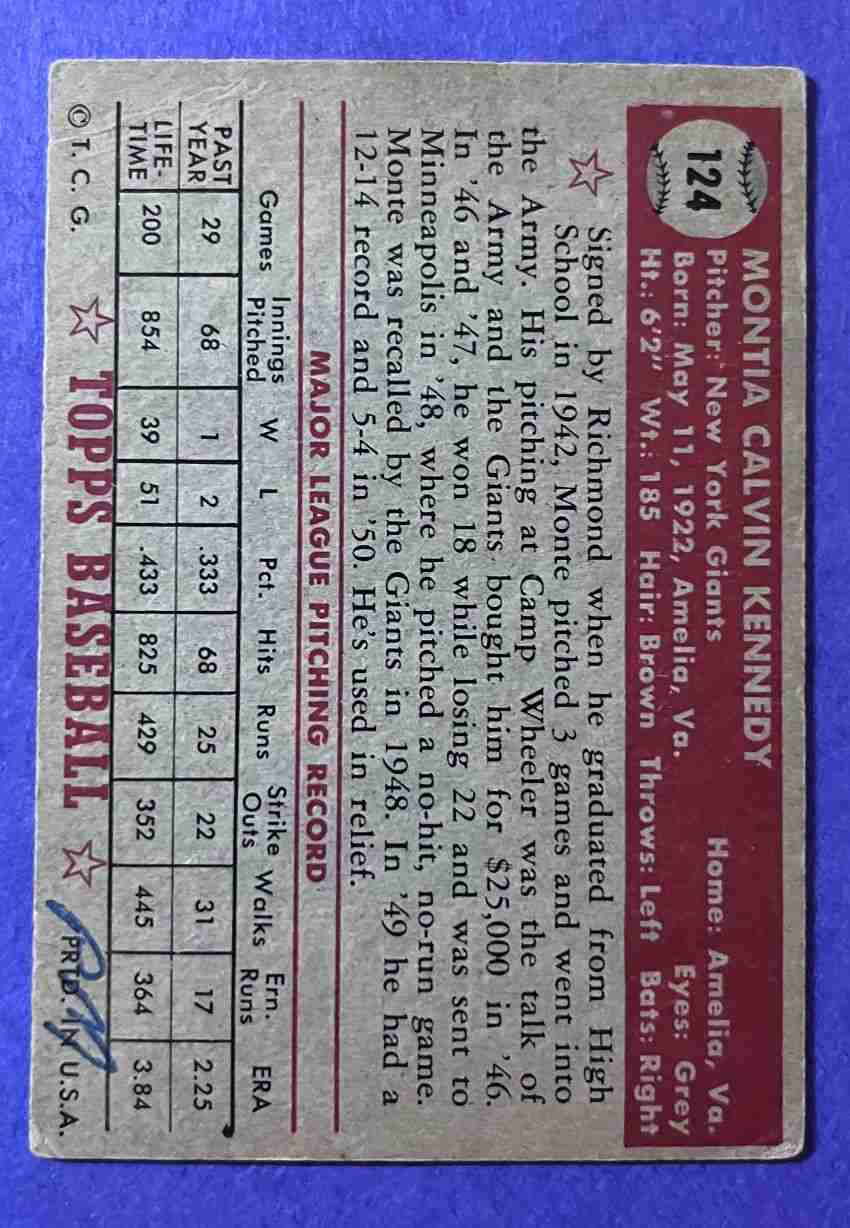 124
MONTIA CALVIN KENNEDY
Pitcher: New York Giants Home: Amelia, Va.
Born: May 11, 1922, Amelia, Va. Eyes: Grey
Ht.: 6'2" Wt.: 185 Hair: Brown Throws: Left Bats: Right
Signed by Richmond when he graduated from High
School in 1942, Monte pitched 3 games and went into
the Army. His pitching at Camp Wheeler was the talk of
the Army and the Giants bought him for $25,000 in '46.
In '46 and '47, he won 18 while losing 22 and was sent to
Minneapolis in '48, where he pitched a no-hit, no-run game.
Monte was recalled by the Giants in 1948. In '49 he had a
12-14 record and 5-4 in '50. He's used in relief.
MAJOR LEAGUE PITCHING RECORD
Games Innings Pitched W L Pct. Hits Runs Strike Outs Walks Ern. Runs ERA
PAST YEAR 29 68 1 2 .333 68 25 22 31 17 2.25
LIFE-TIME 200 854 39 51 .433 825 429 352 445 364 3.84
© T. C. G. TOPPS BASEBALL PRTD. IN U.S.A.